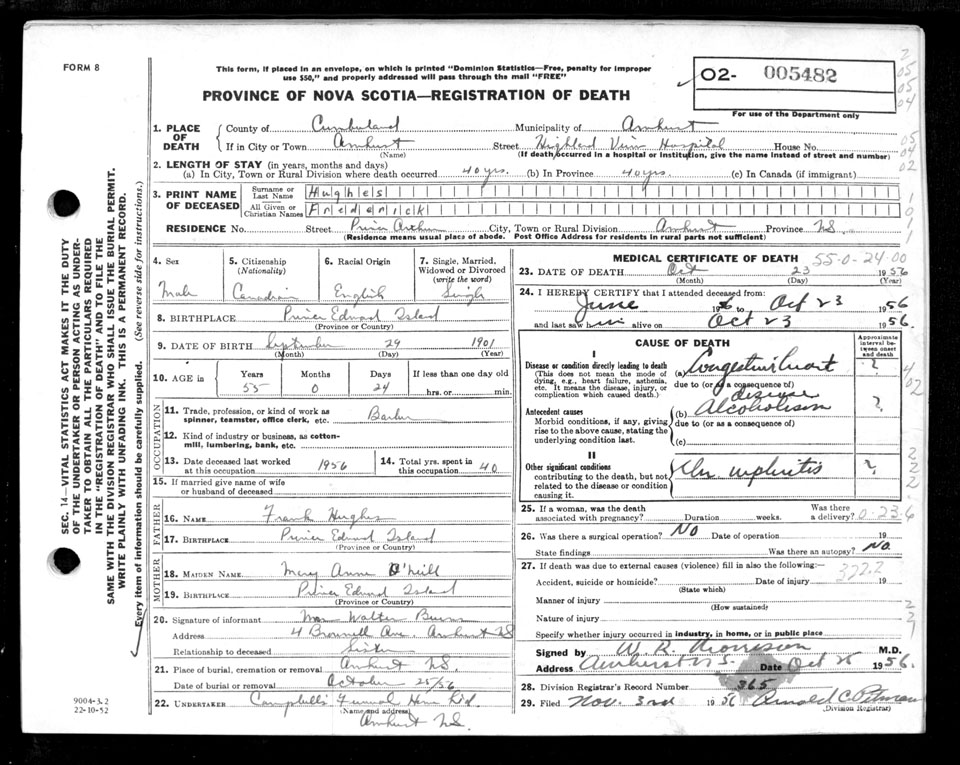 FORM 8
This form, if placed in an envelope, on which is printed "Dominion Statistics—Free, penalty for improper
use $50," and properly addressed will pass through the mail "FREE"
O2- 005482
For use of the Department only
PROVINCE OF NOVA SCOTIA—REGISTRATION OF DEATH
2 05 05 04
05 04 02
1 01 1
SEC. 14—VITAL STATISTICS ACT MAKES IT THE DUTY
OF THE UNDERTAKER OR PERSON ACTING AS UNDER-
TAKER TO OBTAIN ALL THE PARTICULARS REQUIRED
IN THE "REGISTRATION OF DEATH" AND TO FILE THE
SAME WITH THE DIVISION REGISTRAR WHO SHALL ISSUE THE BURIAL PERMIT.
WRITE PLAINLY WITH UNFADING INK. THIS IS A PERMANENT RECORD.
Every item of information should be carefully supplied. (See reverse side for instructions.)
1. PLACE OF DEATH
County of Cumberland Municipality of Amherst
If in City or Town Amherst Street Highland View Hospital House No.
(Name) (If death occurred in a hospital or institution, give the name instead of street and number)
2. LENGTH OF STAY (in years, months and days)
(a) In City, Town or Rural Division where death occurred 40 yrs. (b) In Province 40 yrs. (c) In Canada (if immigrant)
3. PRINT NAME OF DECEASED
Surname or Last Name Hughes
All Given or Christian Names Frederick
RESIDENCE No. Street Prince Arthur City, Town or Rural Division Amherst Province NS.
(Residence means usual place of abode. Post Office Address for residents in rural parts not sufficient)
4. Sex Male
5. Citizenship (Nationality) Canadian
6. Racial Origin English
7. Single, Married, Widowed or Divorced (write the word) Single
8. BIRTHPLACE Prince Edward Island
(Province or Country)
9. DATE OF BIRTH September 29 1901
(Month) (Day) (Year)
10. AGE in Years Months Days If less than one day old
55 0 24 hrs. or min.
OCCUPATION
11. Trade, profession, or kind of work as spinner, teamster, office clerk, etc. Barber
12. Kind of industry or business, as cotton-mill, lumbering, bank, etc.
13. Date deceased last worked at this occupation 1956
14. Total yrs. spent in this occupation 40
15. If married give name of wife or husband of deceased
FATHER
16. NAME Frank Hughes
17. BIRTHPLACE Prince Edward Island
(Province or Country)
MOTHER
18. MAIDEN NAME Mary Anne O'Neill
19. BIRTHPLACE Prince Edward Island
(Province or Country)
20. Signature of informant Walter
Address 4 Ave. Amherst NS
Relationship to deceased Sister
21. Place of burial, cremation or removal Amherst NS.
Date of burial or removal October 25/56
22. UNDERTAKER Campbell's Funeral Home Ltd.
(Name and address) Amherst NS
9004-3.2
22-10-52
MEDICAL CERTIFICATE OF DEATH 55-0-24-00
23. DATE OF DEATH Oct 23 1956
(Month) (Day) (Year)
24. I HEREBY CERTIFY that I attended deceased from:
June 1956 to Oct 23 1956
and last saw him alive on Oct 23 1956.
CAUSE OF DEATH
Approximate interval between onset and death
I
Disease or condition directly leading to death
(This does not mean the mode of dying, e.g., heart failure, asthenia, etc. It means the disease, injury, or complication which caused death.)
(a) Congestive heart disease ?
due to (or as a consequence of)
Antecedent causes
Morbid conditions, if any, giving rise to the above cause, stating the underlying condition last.
(b) Alcoholism ?
due to (or as a consequence of)
(c)
II
Other significant conditions
contributing to the death, but not related to the disease or condition causing it.
Chr. nephritis ?
4 02
2 2 2
25. If a woman, was the death associated with pregnancy? Duration weeks. Was there a delivery? 0-23-6
26. Was there a surgical operation? No Date of operation 19
State findings Was there an autopsy? No.
27. If death was due to external causes (violence) fill in also the following:— 3222
Accident, suicide or homicide? Date of injury 19
(State which)
Manner of injury
(How sustained)
Nature of injury
Specify whether injury occurred in industry, in home, or in public place
Signed by W. R. Morrison M.D.
Address Amherst N.S. Date Oct 25 1956.
28. Division Registrar's Record Number 365
29. Filed Nov. 3rd 1956 Arnold C.
(Division Registrar)